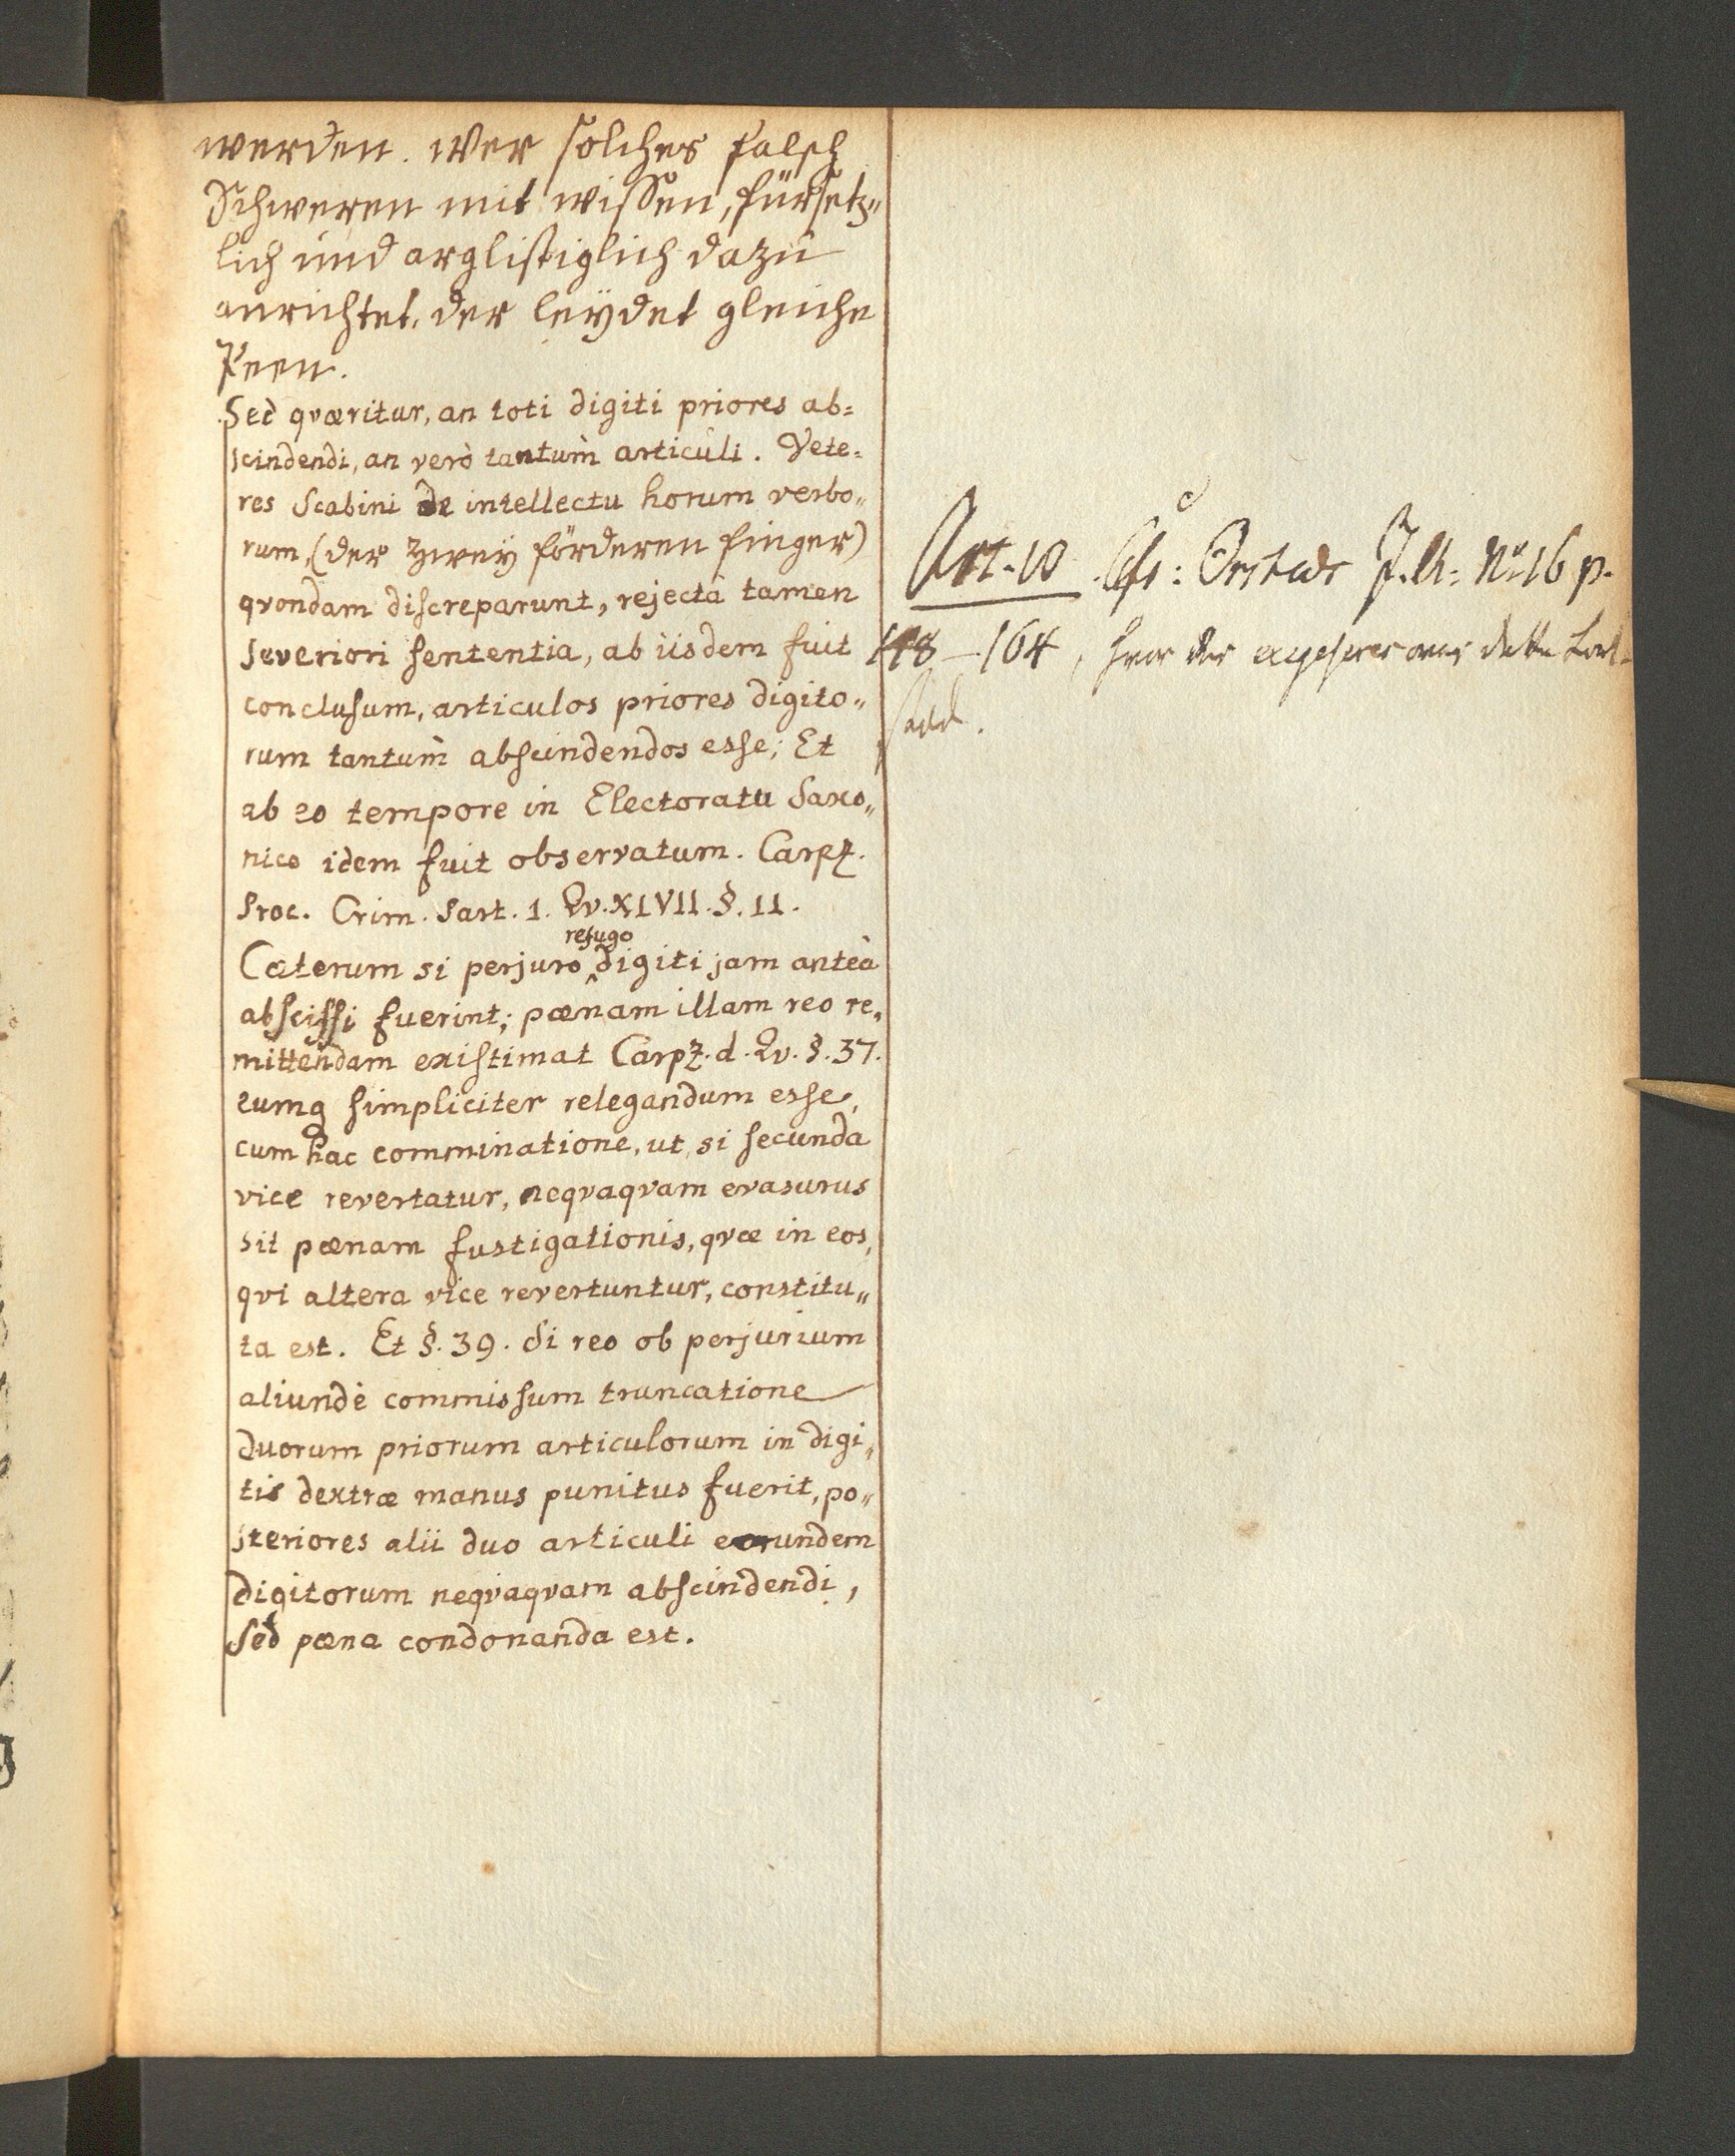 werden. Wer solches falsch
Schweren mit wissen, fürsetz„
lich und arglistiglich dazu
anrichtet, der leydet gleiche
Peen.
Sed qværitur, an toti digiti priores ab=
scindendi, an verò tantùm articuli. Vete=
res Scabini de intellectu horum verbo„
rum, (der zwey förderen finger)
qvondam discreparunt, rejectâ tamen
severiori sententia, ab iisdem fuit
conclusum, articulos priores digito„
rum tantùm abscindendos esse; Et
ab eo tempore in Electoratu Saxo„
nico idem fuit observatum. Carpz.
Proc. Crim. Part. 1. Qv. XLVII. §. 11.
Cæterum si perjuro refugo digiti jam anteà
abscissi fuerint; pœnam illam reo re„
mittendam existimat Carpz. d. Qv. §. 37.
eumq simpliciter relegandum esse,
cum hac comminatione, ut, si secunda
vice revertatur, neqvaqvam evasurus
sit pœnam fustigationis, qvæ in eos,
qvi altera vice revertuntur, constitu„
ta est. Et §. 39. Si reo ob perjurium
aliundè commissum truncatione
duorum priorum articulorum in digi„
tis dextræ manus punitus fuerit, po„
steriores alii duo articuli eorundem
digitorum neqvaqvam abscindendi,
Sed pœna condonanda est.
Art. 10 Cfr: Ørsteds J. A. No 16 p.
148–164, hvor der over dette Lov-
sted.